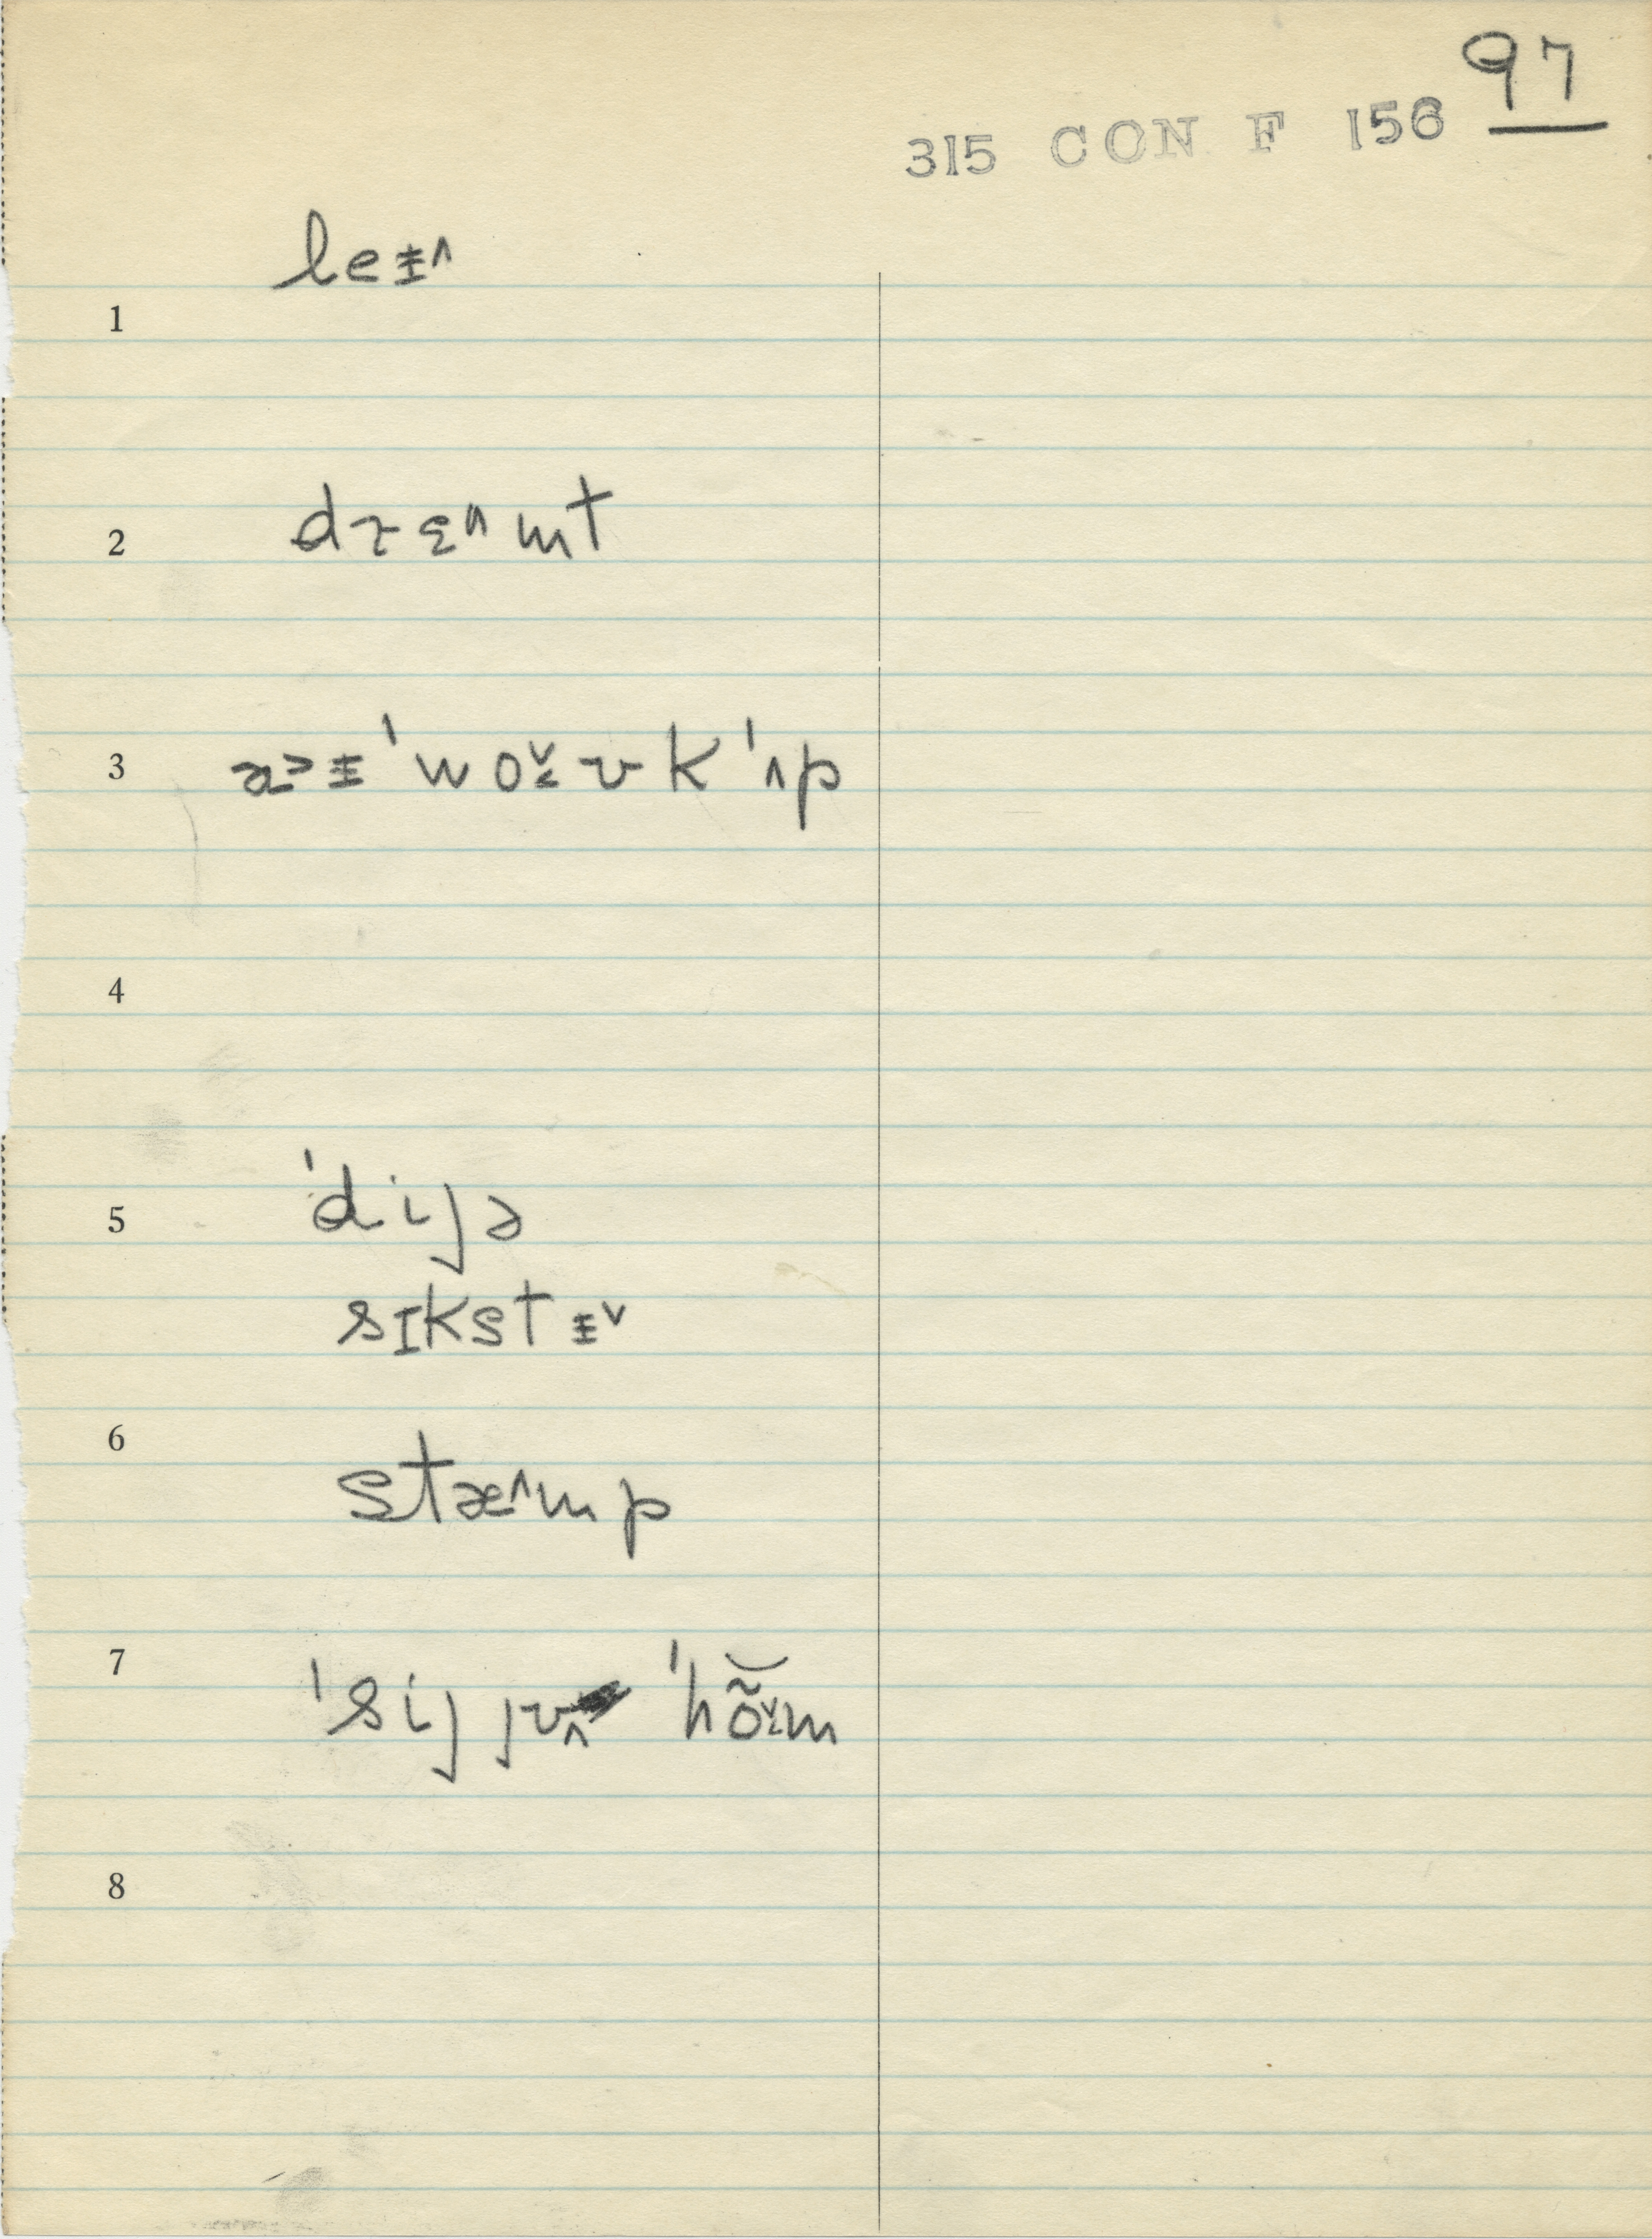 97
315 CON F 156
leɨ̵˄
1
2 dɼɛ˄mt
3 a˃ɨ̵ˈwo˅˂ʊkˈʌp
4
5 ˈdijə
sɪkstɨ̵˅
6
stæ˄mp
7
ˈsij jʊ˄ ˈhõ˅˂m
8